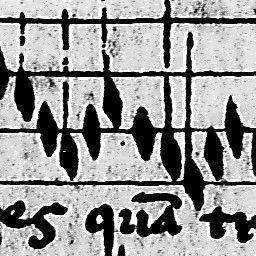 es quā tr